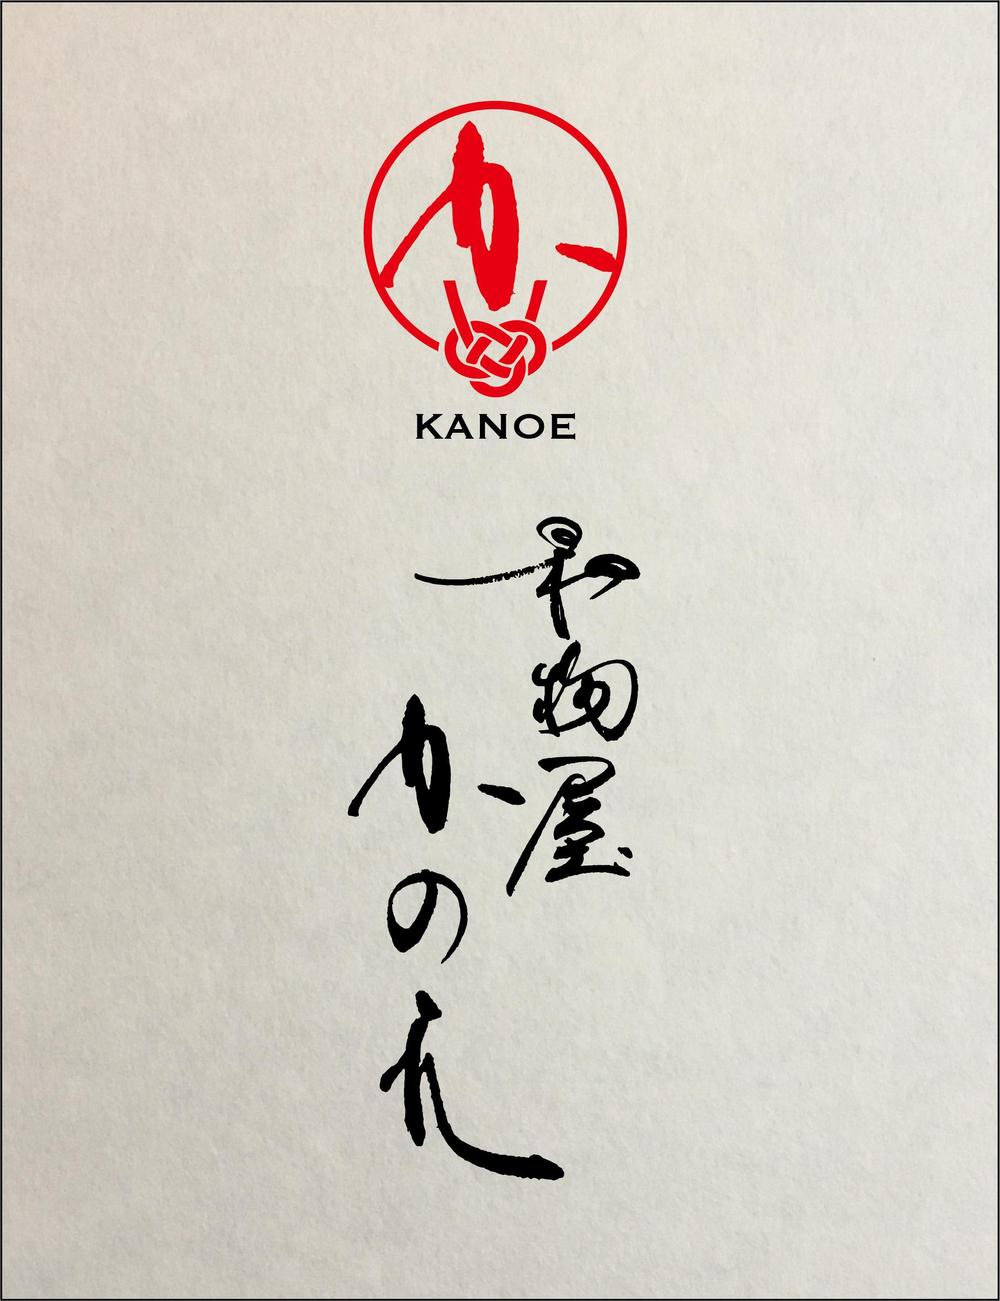 か
KANOE
和物屋
かのえ